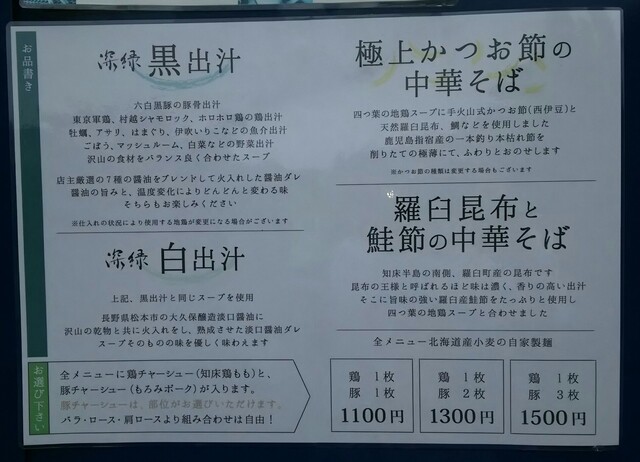 お品書き
深緑 黒出汁
六白黒豚の豚骨出汁
東京軍鶏、村越シャモロック、ホロホロ鶏の鶏出汁
牡蠣、アサリ、はまぐり、伊吹いりこなどの魚介出汁
ごぼう、マッシュルーム、白菜などの野菜出汁
沢山の食材をバランス良く合わせたスープ
店主厳選の7種の醤油をブレンドして火入れした醤油ダレ
醤油の旨みと、温度変化によりどんどんと変わる味
そちらもお楽しみください
※仕入れの状況により使用する地鶏が変更になる場合がございます
深緑 白出汁
上記、黒出汁と同じスープを使用
長野県松本市の大久保醸造淡口醤油に
沢山の乾物と共に火入れをし、熟成させた淡口醤油ダレ
スープそのものの味を優しく味わえます
極上かつお節の
中華そば
四つ葉の地鶏スープに手火山式かつお節(西伊豆)と
天然羅臼昆布、鯛などを使用しました
鹿児島指宿産の一本釣り本枯れ節を
削りたての極薄にて、ふわりとおのせします
※かつお節の種類は変更する場合もございます
羅臼昆布と
鮭節の中華そば
知床半島の南側、羅臼町産の昆布です
昆布の王様と呼ばれるほど味は濃く、香りの高い出汁
そこに旨味の強い羅臼産鮭節をたっぷりと使用し
四つ葉の地鶏スープと合わせました
全メニュー北海道産小麦の自家製麺
お選び下さい
全メニューに鶏チャーシュー(知床鶏もも)と、
豚チャーシュー(もろみポーク)が入ります。
豚チャーシューは、部位がお選びいただけます。
バラ・ロース・肩ロースより組み合わせは自由!
鶏 1枚
豚 1枚
1100円
鶏 1枚
豚 2枚
1300円
鶏 1枚
豚 3枚
1500円